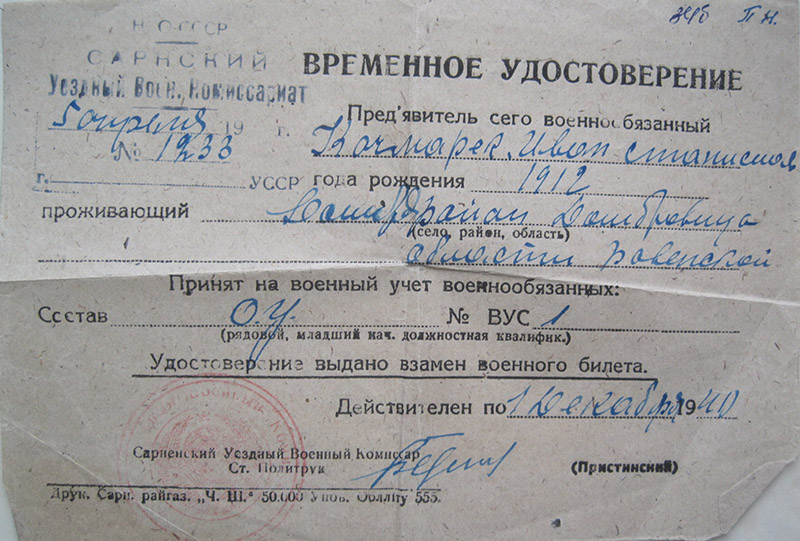 3496 П н.
Н.О.СССР
САРНСКИЙ
Уездный Воен. Комиссариат
5 апреля 19 г.
№ 1233
г. УССР
ВРЕМЕННОЕ УДОСТОВЕРЕНИЕ
Пред'явитель сего военнообязанный
Качмарек Иван Станислав
года рождения 1912
проживающий район Домбровица
(село, район, область)
области Ровенской
Принят на военный учет военнообязанных:
Состав О.У. № ВУС 1
(рядовой, младший нач. должностная квалифик.)
Удостоверение выдано взамен военного билета.
Действителен по 1 Декабря 1940
Сарненский Уездный Военный Комиссар
Ст. Политрук
(Пристинский)
Друк. Сарн. райгаз. „Ч. Ш.“ 50.000 Упов. Обллiту 555.